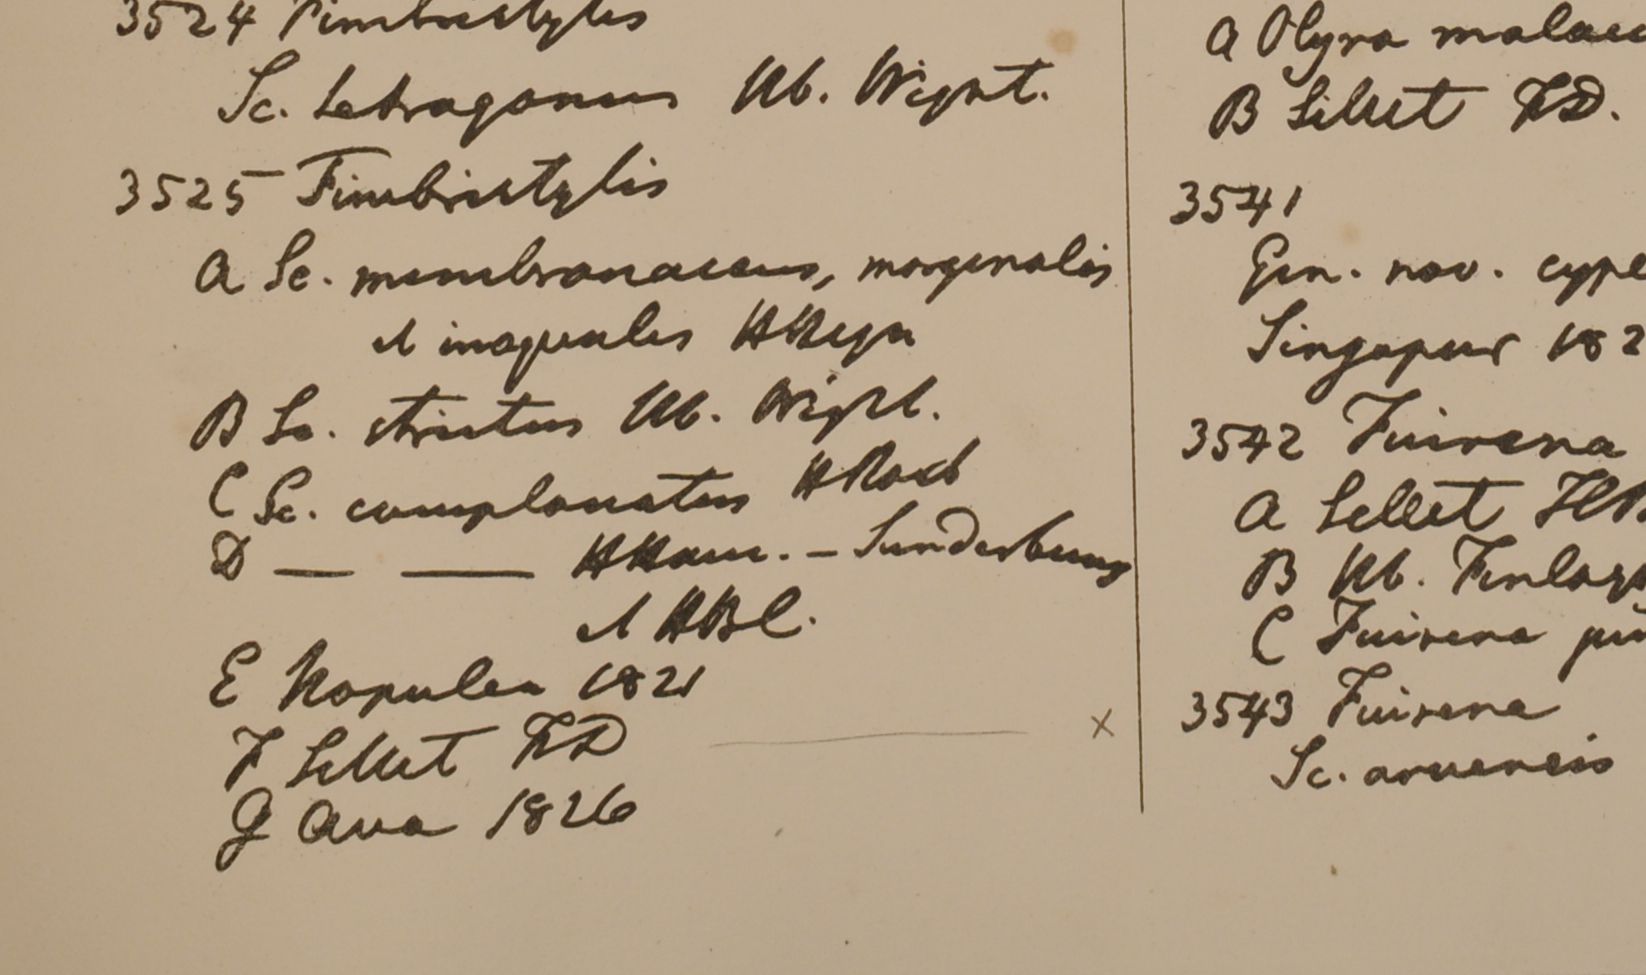 3524 Fimbristylis
Sc. tetragonus Hb. Wight.
3525 Fimbristylis
A Sc. membranaceus, marginalis
& inaequales HHeyn
B Sc. strictus Hb. Wight.
C Sc. complanatus HRoxb
D — — HHam. - Sunderbung
& HBC.
E Napulea 1821
F Sillet FD
G Ava 1826
A Olyra malacc
B Sillet FD.
3541
Gen. nov. cype
Singapur 182
3542 Fuirena
A Sillet
B Hb. Finlays
C Fuirena
3543 Fuirena
Sc. arvensis